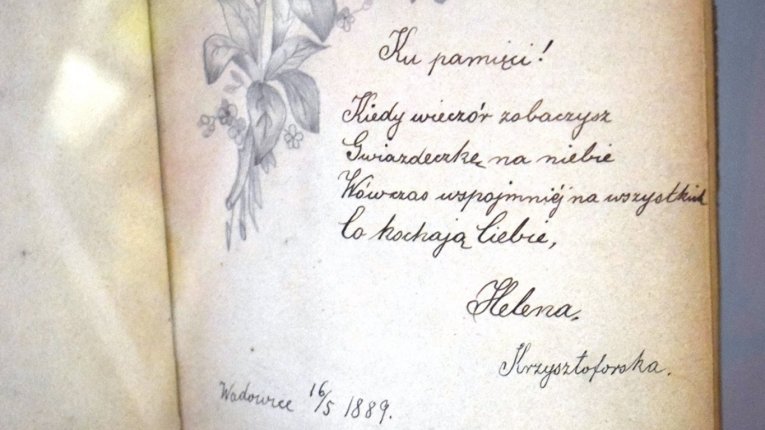 Ku pamięci!
Kiedy wieczór zobaczysz
Gwiazdeczkę na niebie
Wówczas wspojmniéj na wszystkich
Co kochają Ciebie,
Helena.
Krzysztoforska.
Wadowice 16/5 1889.